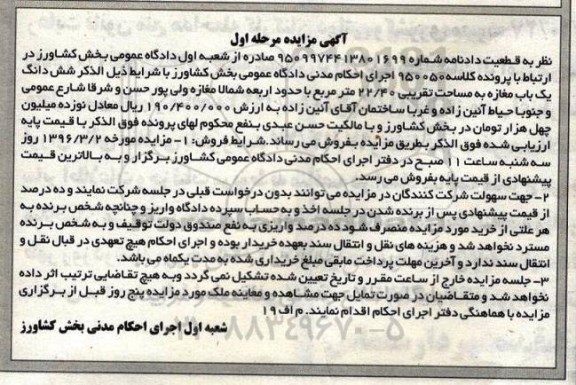 آگهی مزایده مرحله اول
نظر به قطعیت دادنامه شماره ۹۵۰۹۹۷۴۴۱۳۸۰۱۶۹۹ صادره از شعبه اول دادگاه عمومی بخش کشاورز در
ارتباط با پرونده کلاسه ۹۵۰۰۵۰ اجرای احکام مدنی دادگاه عمومی بخش کشاورز با شرایط ذیل الذکر شش دانگ
یک باب مغازه به مساحت تقریبی ۲۲/۴۰ متر مربع با حدود اربعه شمالا مغازه ولی پور حسن و شرقا شارع عمومی
و جنوبا حیاط آئین زاده و غربا ساختمان آقای آئین زاده به ارزش ۱۹۰/۴۰۰/۰۰۰ ریال معادل نوزده میلیون
چهل هزار تومان در بخش کشاورز و با مالکیت حسن عبدی بنفع محکوم لهای پرونده فوق الذکر با قیمت پایه
ارزیابی شده فوق الذکر بطریق مزایده بفروش می رساند. شرایط فروش: ۱- مزایده مورخه ۱۳۹۶/۳/۲ روز
سه شنبه ساعت ۱۱ صبح در دفتر اجرای احکام مدنی دادگاه عمومی کشاورز برگزار و به بالاترین قیمت
پیشنهادی از قیمت پایه بفروش می رسد.
۲- جهت سهولت شرکت کنندگان در مزایده می توانند بدون درخواست قبلی در جلسه شرکت نمایند و ده درصد
از قیمت پیشنهادی پس از برنده شدن در جلسه اخذ و به حساب سپرده دادگاه واریز و چنانچه شخص برنده به
هر علتی از خرید مورد مزایده منصرف شود ده درصد واریزی به نفع صندوق دولت توقیف و به شخص برنده
مسترد نخواهد شد و هزینه های نقل و انتقال سند بعهده خریدار بوده و اجرای احکام هیچ تعهدی در قبال نقل و
انتقال سند ندارد و آخرین مهلت پرداخت مابقی مبلغ خریداری شده به مدت یکماه می باشد.
۳- جلسه مزایده خارج از ساعت مقرر و تاریخ تعیین شده تشکیل نمی گردد و به هیچ تقاضایی ترتیب اثر داده
نخواهد شد و متقاضیان در صورت تمایل جهت مشاهده و معاینه ملک مورد مزایده پنج روز قبل از برگزاری
مزایده با هماهنگی دفتر اجرای احکام اقدام نمایند. م الف ۱۹
شعبه اول اجرای احکام مدنی بخش کشاورز